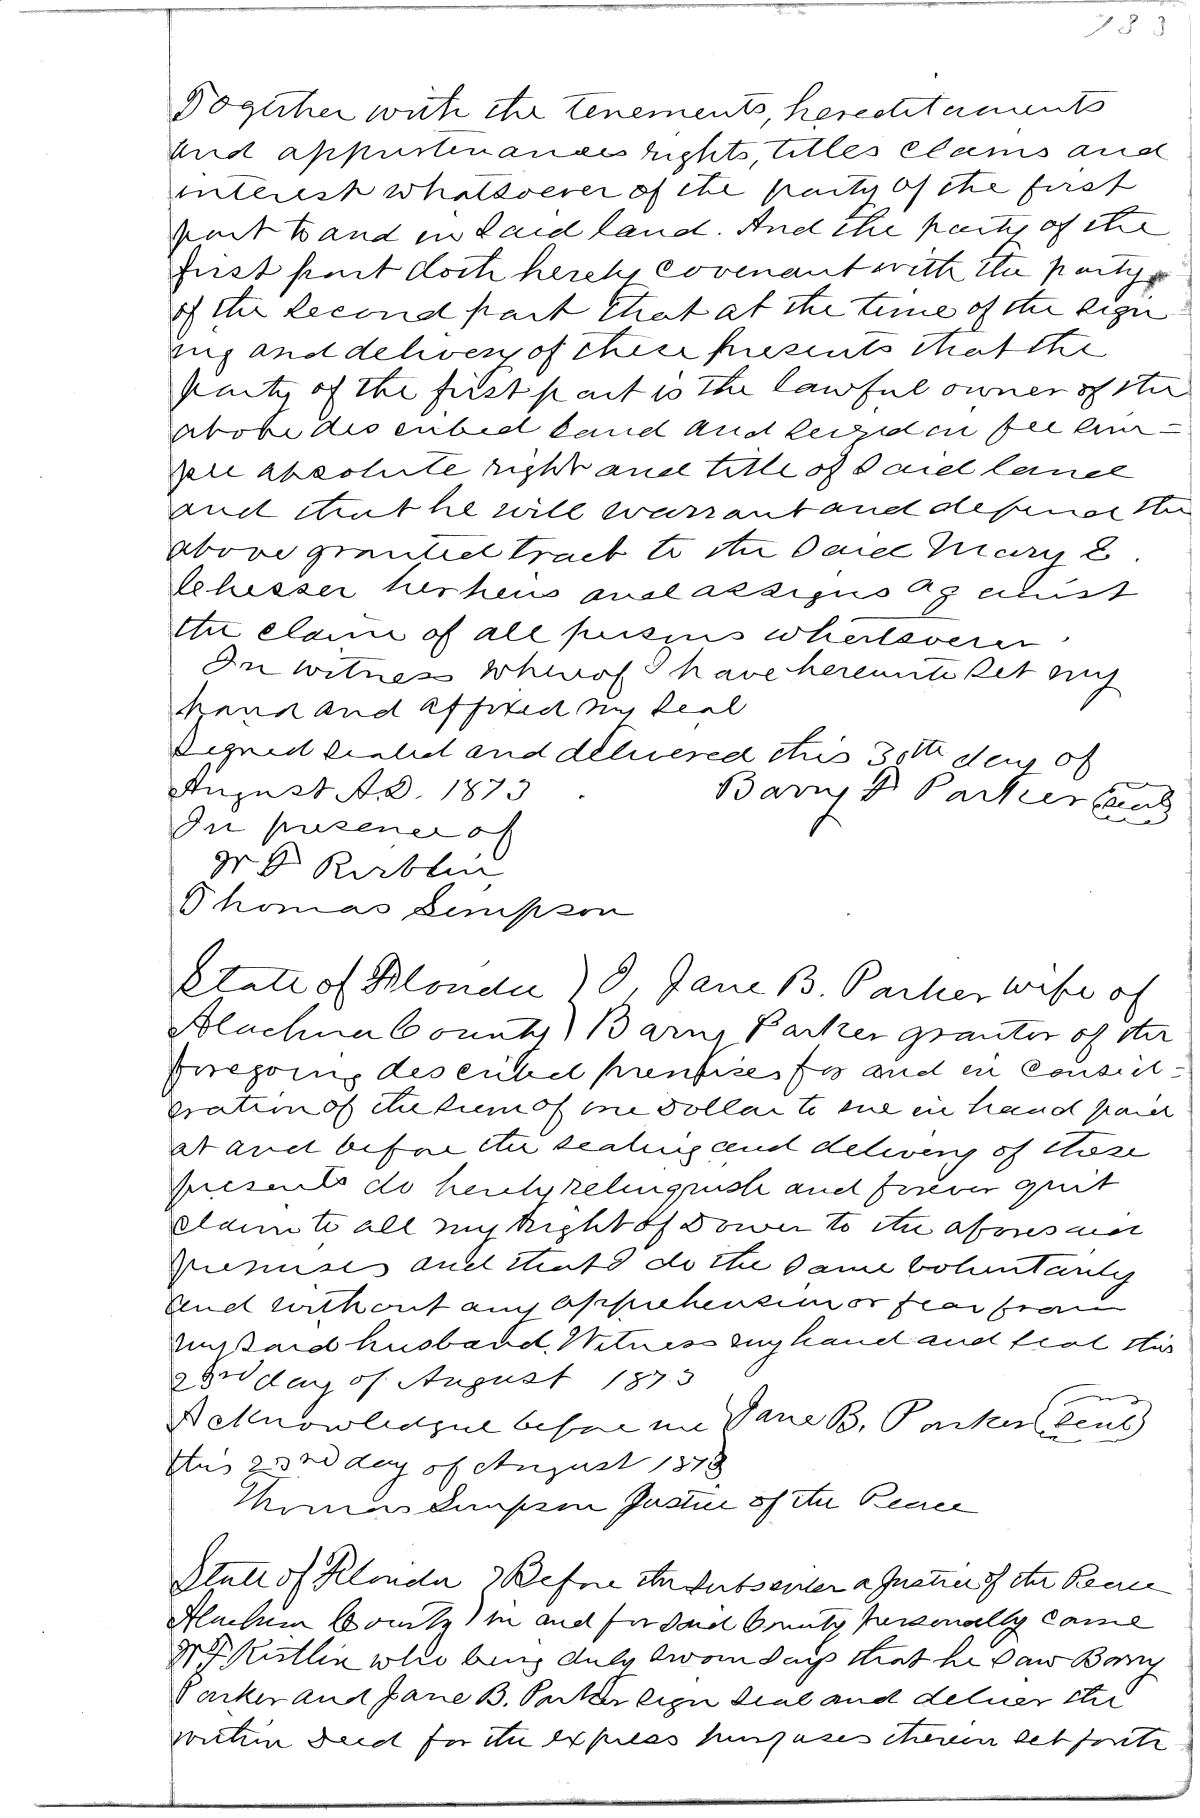 733
Together with the tenements, hereditaments
and appurtenances rights, titles claims and
interest whatsoever of the party of the first
part to and in said land. And the party of the
first part doth hereby covenant with the party
of the second part that at the time of the sign
ing and delivery of these presents that the
party of the first part is the lawful owner of the
above described land and seized in fee sim=
ple absolute right and title of said land
and that he will warrant and defend the
above granted tract to the said Mary E.
Chesser her heirs and assigns against
the claim of all persons whatsoever.
In witness whereof I have hereunto set my
hand and affixed my seal
Signed sealed and delivered this 30th day of
August A.D. 1873. Barry F Parker (seal)
In presence of
W F
Thomas Simpson
State of Florida } I, Jane B. Parker wife of
Alachua County } Barry Parker grantor of the
foregoing described premises for and in consid=
eration of the sum of one Dollar to me in hand paid
at and before the sealing and delivery of these
presents do hereby relinquish and forever quit
claim to all my right of Dower to the aforesaid
premises and that I do the same voluntarily
and without any apprehension or fear from
my said husband. Witness my hand and seal this
23rd day of August 1873
Acknowledgue before me } Jane B. Parker (seal)
this 23rd day of August 1873
Thomas Simpson Justice of the Peace
State of Florida } Before the subscriber a Justice of the Peace
Alachua County } in and for said County personally came
W F Kistlin who being duly sworn says that he saw Barry
Parker and Jane B. Parker sign seal and deliver the
within Deed for the express purposes therein set forth